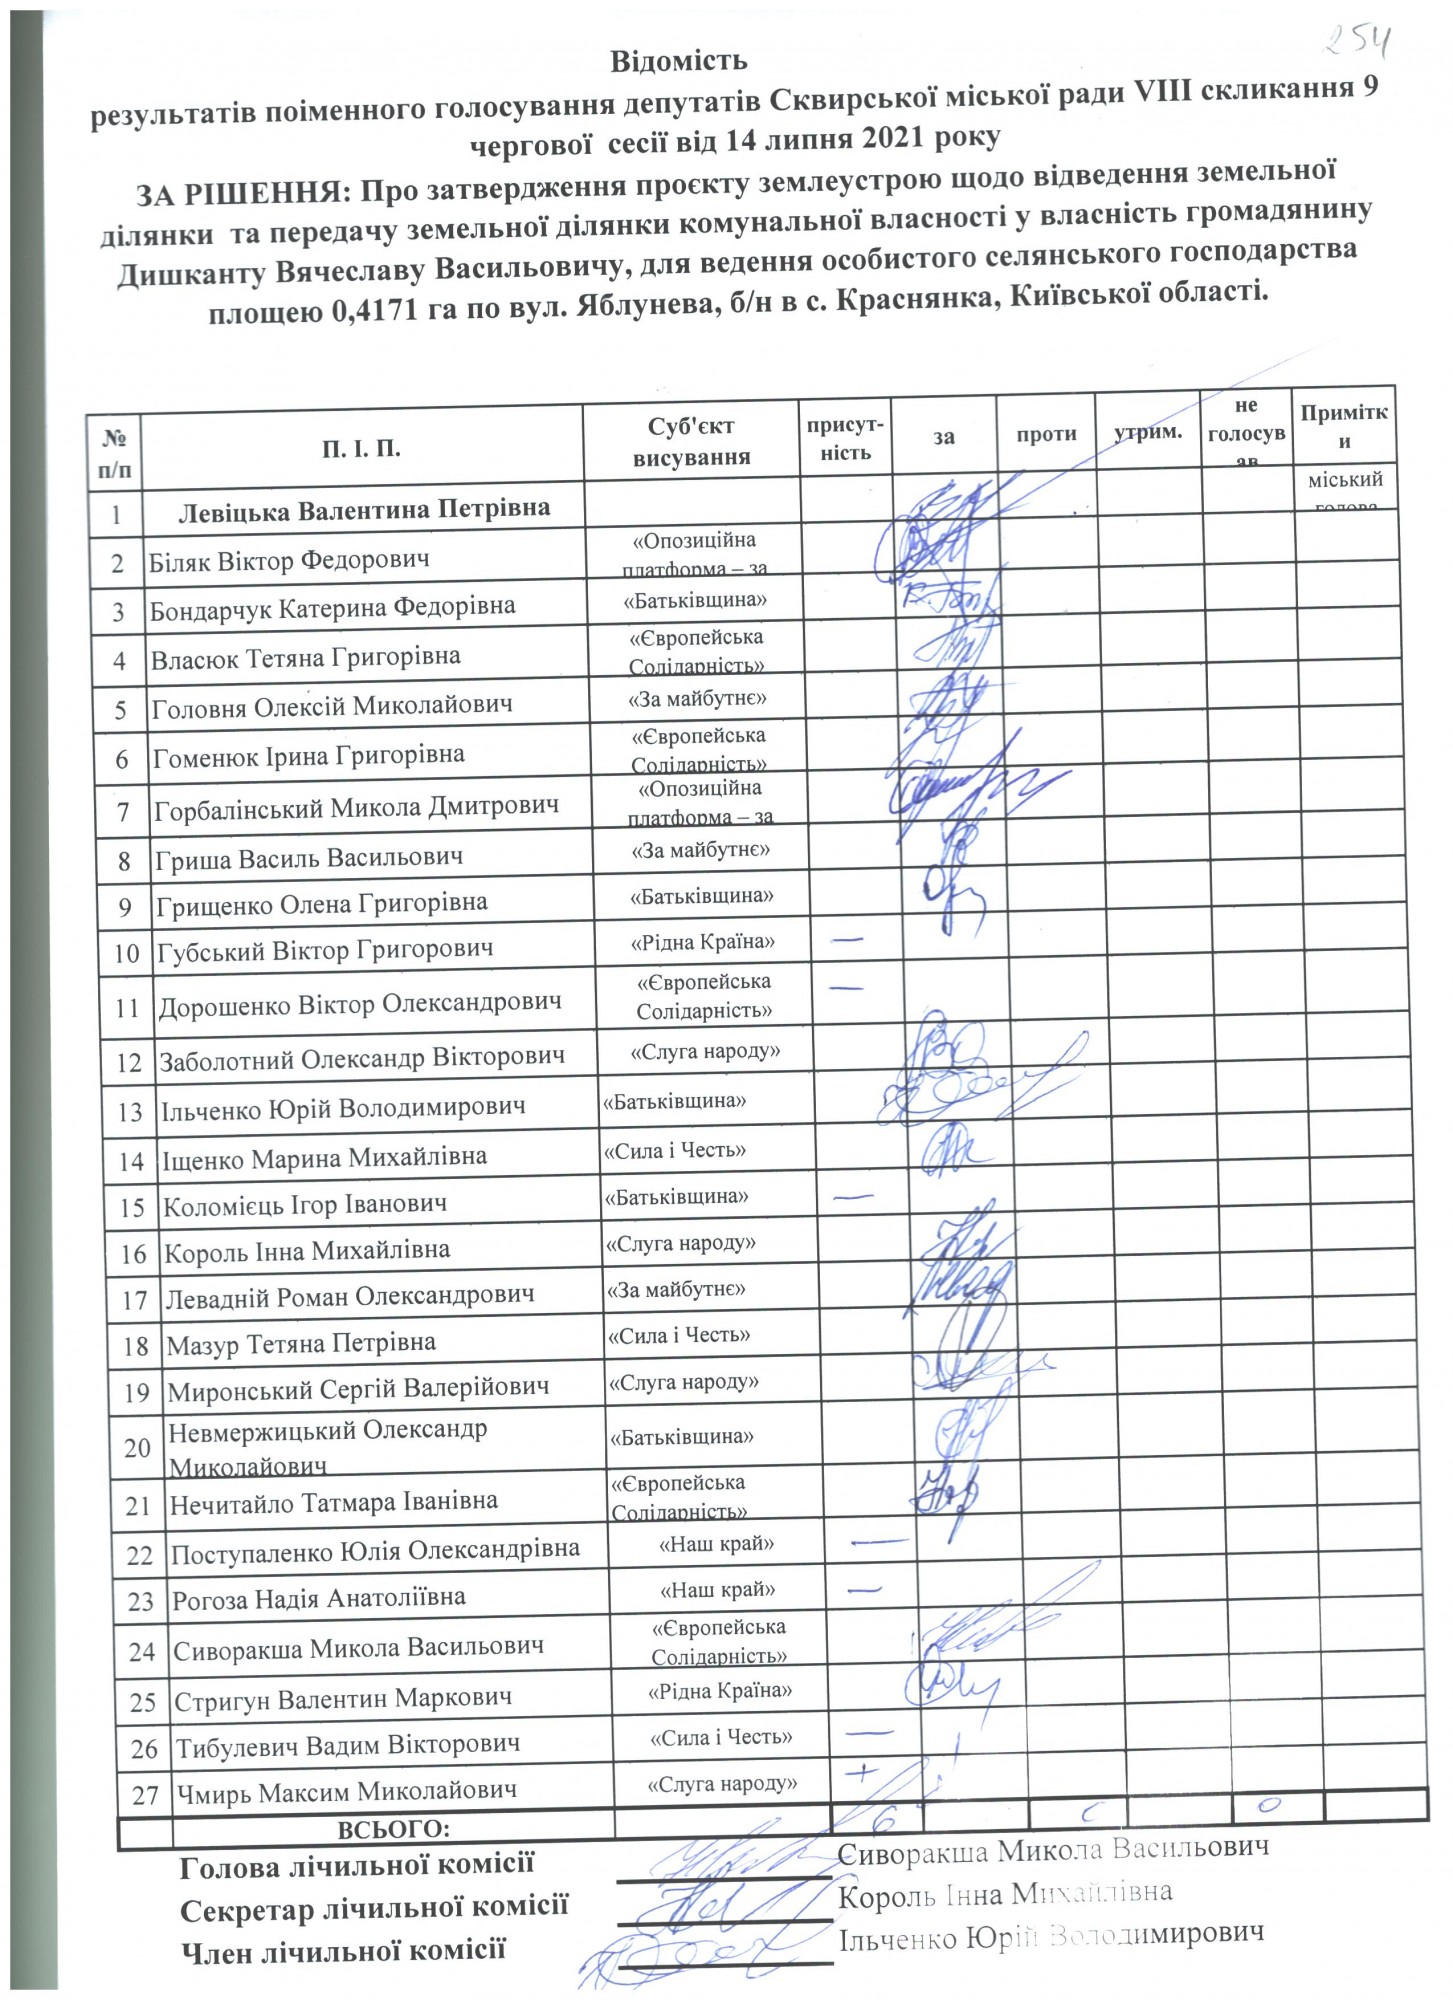 254
Відомість
результатів поіменного голосування депутатів Сквирської міської ради VIII скликання 9
чергової сесії від 14 липня 2021 року
ЗА РІШЕННЯ: Про затвердження проєкту землеустрою щодо відведення земельної
ділянки та передачу земельної ділянки комунальної власності у власність громадянину
Дишканту Вячеславу Васильовичу, для ведення особистого селянського господарства
площею 0,4171 га по вул. Яблунева, б/н в с. Краснянка, Київської області.
№ п/п П. І. П. Суб'єкт висування присут-ність за проти утрим. не голосував Примітки
1 Левіцька Валентина Петрівна міський голова
2 Біляк Віктор Федорович «Опозиційна платформа – за
3 Бондарчук Катерина Федорівна «Батьківщина»
4 Власюк Тетяна Григорівна «Європейська Солідарність»
5 Головня Олексій Миколайович «За майбутнє»
6 Гоменюк Ірина Григорівна «Європейська Солідарність»
7 Горбалінський Микола Дмитрович «Опозиційна платформа – за
8 Гриша Василь Васильович «За майбутнє»
9 Грищенко Олена Григорівна «Батьківщина»
10 Губський Віктор Григорович «Рідна Країна» —
11 Дорошенко Віктор Олександрович «Європейська Солідарність» —
12 Заболотний Олександр Вікторович «Слуга народу»
13 Ільченко Юрій Володимирович «Батьківщина»
14 Іщенко Марина Михайлівна «Сила і Честь»
15 Коломієць Ігор Іванович «Батьківщина» —
16 Король Інна Михайлівна «Слуга народу»
17 Левадній Роман Олександрович «За майбутнє»
18 Мазур Тетяна Петрівна «Сила і Честь»
19 Миронський Сергій Валерійович «Слуга народу»
20 Невмержицький Олександр Миколайович «Батьківщина»
21 Нечитайло Татмара Іванівна «Європейська Солідарність»
22 Поступаленко Юлія Олександрівна «Наш край» —
23 Рогоза Надія Анатоліївна «Наш край» —
24 Сиворакша Микола Васильович «Європейська Солідарність»
25 Стригун Валентин Маркович «Рідна Країна»
26 Тибулевич Вадим Вікторович «Сила і Честь» —
27 Чмирь Максим Миколайович «Слуга народу» +
ВСЬОГО: 6 0
Голова лічильної комісії Сиворакша Микола Васильович
Секретар лічильної комісії Король Інна Михайлівна
Член лічильної комісії Ільченко Юрій Володимирович